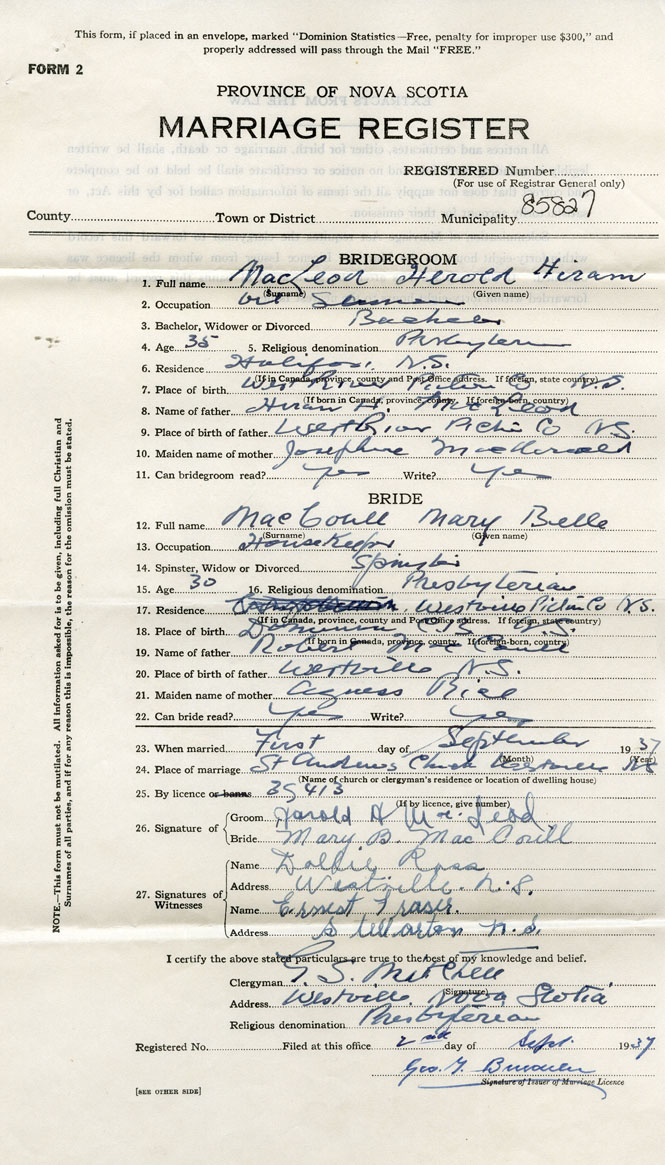 This form, if placed in an envelope, marked "Dominion Statistics—Free, penalty for improper use $300," and
properly addressed will pass through the Mail "FREE."
FORM 2
PROVINCE OF NOVA SCOTIA
MARRIAGE REGISTER
REGISTERED Number
(For use of Registrar General only)
85827
County Town or District Municipality
BRIDEGROOM
1. Full name MacLeod Herold Hiram
(Surname) (Given name)
2. Occupation Seaman
3. Bachelor, Widower or Divorced Bachelor
4. Age 35 5. Religious denomination Presbyterian
6. Residence Halifax, N.S.
(If in Canada, province, county and Post Office address. If foreign, state country)
7. Place of birth West River Pictou Co N.S.
(If born in Canada, province, county. If foreign-born, country)
8. Name of father Hiram H. MacLeod
9. Place of birth of father West River Pictou Co N.S.
10. Maiden name of mother Josephine MacDonald
11. Can bridegroom read? yes Write? yes
BRIDE
12. Full name MacCoull Mary Belle
(Surname) (Given name)
13. Occupation Housekeeper
14. Spinster, Widow or Divorced Spinster
15. Age 30 16. Religious denomination Presbyterian
17. Residence Westville Pictou Co N.S.
(If in Canada, province, county and Post Office address. If foreign, state country)
18. Place of birth Dominion C.B. N.S.
(If born in Canada, province, county. If foreign-born, country)
19. Name of father Robert MacCoull
20. Place of birth of father Westville N.S.
21. Maiden name of mother Agness
22. Can bride read? yes Write? yes
23. When married First day of September 1937
(Month) (Year)
24. Place of marriage St Andrews Church Westville NS
(Name of church or clergyman's residence or location of dwelling house)
25. By licence or banns 35413
(If by licence, give number)
26. Signature of
Groom Harold H MacLeod
Bride Mary B. MacCoull
27. Signatures of Witnesses
Name Dollie Ross
Address Westville N.S.
Name Ernest Fraser.
Address Stellarton N.S.
I certify the above stated particulars are true to the best of my knowledge and belief.
Clergyman G. S. Mitchell
(Signature)
Address Westville, Nova Scotia
Religious denomination Presbyterian
Registered No. Filed at this office 2nd day of Sept. 1937
Geo. Y.
Signature of Issuer of Marriage Licence
[SEE OTHER SIDE]
NOTE.—This form must not be mutilated. All information asked for is to be given, including full Christian and
Surnames of all parties, and if for any reason this is impossible, the reason for the omission must be stated.